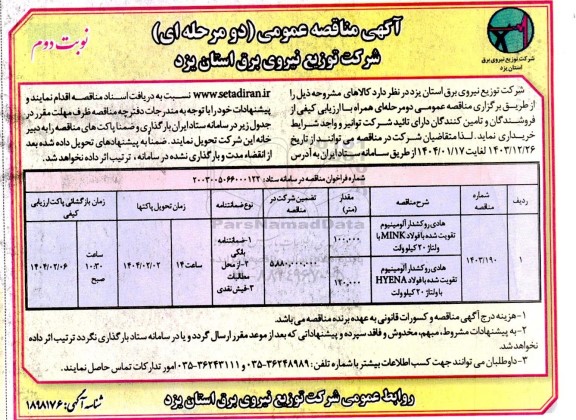 آگهی مناقصه عمومی (دو مرحله ای)
شرکت توزیع نیروی برق استان یزد
نوبت دوم
شرکت توزیع نیروی برق
استان یزد
شرکت توزیع نیروی برق استان یزد در نظر دارد کالاهای مشروحه ذیل را
از طریق برگزاری مناقصه عمومی دو مرحله‌ای همراه با ارزیابی کیفی از
فروشندگان و تامین کنندگان دارای تائید شرکت توانیر و واجد شرایط
خریداری نماید. لذا متقاضیان شرکت در مناقصه می توانند از تاریخ
۱۴۰۳/۱۲/۲۶ لغایت ۱۴۰۴/۰۱/۱۷ از طریق سامانه ستاد ایران به آدرس
www.setadiran.ir نسبت به دریافت اسناد مناقصه اقدام نمایند و
پیشنهادات خود را با توجه به مندرجات دفترچه مناقصه ظرف مهلت مقرر در
جدول زیر در سامانه ستاد ایران بارگذاری و ضمنا پاکت های مناقصه را به دبیر
خانه این شرکت تحویل نمایند. ضمنا به پیشنهادهای تحویل داده شده بعد
از انقضاء مدت و بارگذاری نشده در سامانه، ترتیب اثر داده نخواهد شد.
شماره فراخوان مناقصه در سامانه ستاد: ۲۰۰۳۰۰۵۰۶۶۰۰۰۱۲۳
ردیف
شماره مناقصه
شرح مناقصه
مقدار (متر)
تضمین شرکت در مناقصه
نوع ضمانتنامه
زمان تحویل پاکتها
زمان بازگشائی پاکت ارزیابی کیفی
۱
۱۴۰۳/۱۹۰
هادی روکشدار آلومینیوم
تقویت شده با فولاد MINK با
ولتاژ ۲۰ کیلو ولت
۱۰۰،۰۰۰
هادی روکشدار آلومینیوم
تقویت شده با فولاد HYENA
با ولتاژ ۲۰ کیلو ولت
۱۲۰،۰۰۰
۵،۸۸۰،۰۰۰،۰۰۰
۱-ضمانتنامه
بانکی
۲-از محل
مطالبات
۳-فیش نقدی
ساعت ۱۴
۱۴۰۴/۰۲/۰۲
ساعت
۱۰:۳۰
صبح
۱۴۰۴/۰۲/۰۶
ParsNamadData
۱-هزینه درج آگهی مناقصه و کسورات قانونی به عهده برنده مناقصه می‌باشد.
۲-به پیشنهادات مشروط، مبهم، مخدوش و فاقد سپرده و پیشنهاداتی که بعد از موعد مقرر ارسال گردد و یا در سامانه ستاد بارگذاری نگردد ترتیب اثر داده
نخواهد شد.
۳-داوطلبان می توانند جهت کسب اطلاعات بیشتر با شماره تلفن: ۳۶۲۴۸۹۸۹-۰۳۵ و ۳۶۲۴۳۱۱۱-۰۳۵ امور تدارکات تماس حاصل نمایند.
روابط عمومی شرکت توزیع نیروی برق استان یزد
شناسه آگهی: ۱۸۹۸۱۷۶